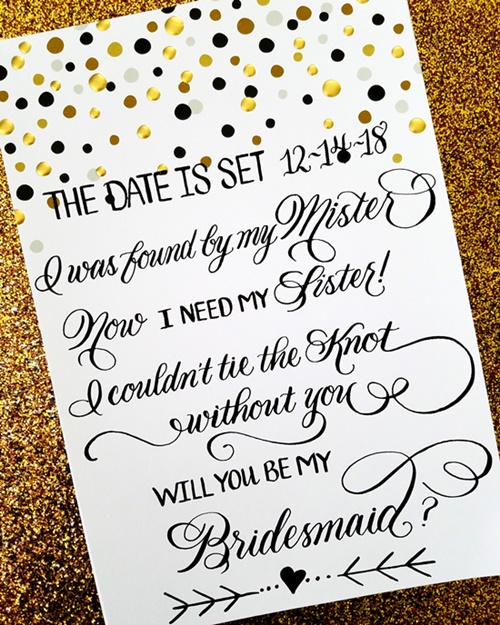 THE DATE IS SET 12~14~18
I was found by my Mister
Now I NEED MY Sister!
I couldn't tie the Knot
without you
WILL YOU BE MY
Bridesmaid?